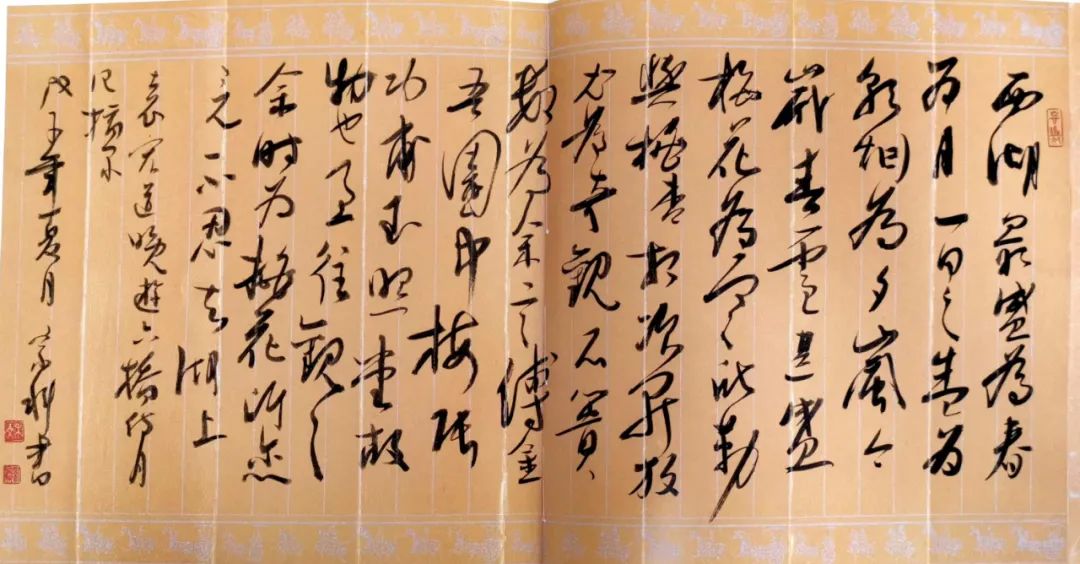 西湖最盛為春
为月一日之盛为
朝烟為夕嵐今
歲春雪甚盛
梅花為寒所勒
與桃杏相次开放
尤为奇觀石簣
數為余言之傅金
吾園中梅張
功甫玉照堂故
物也急往觀之
余時为桃花所恋
竟不忍去湖上
袁宏道晚遊六橋待月
记摘
戊子年夏月 书